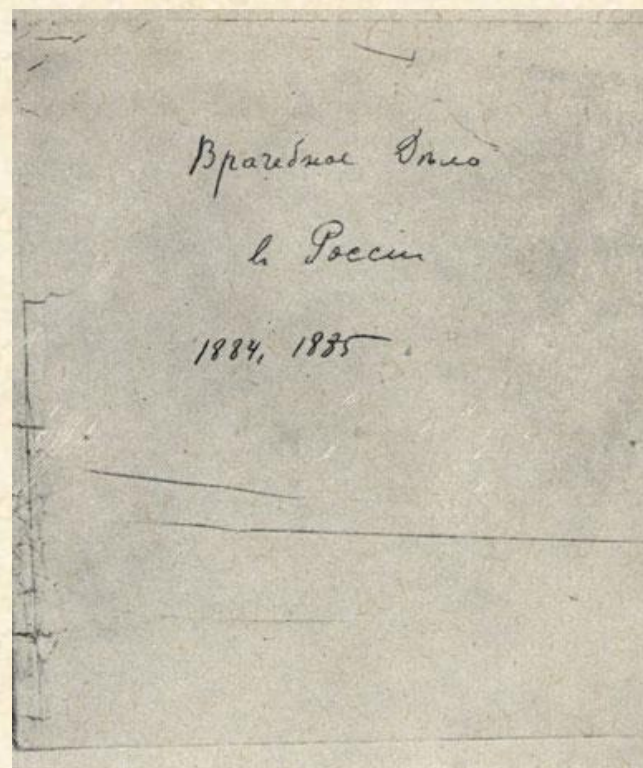 Врачебное Дѣло
в Россіи
1884, 1885